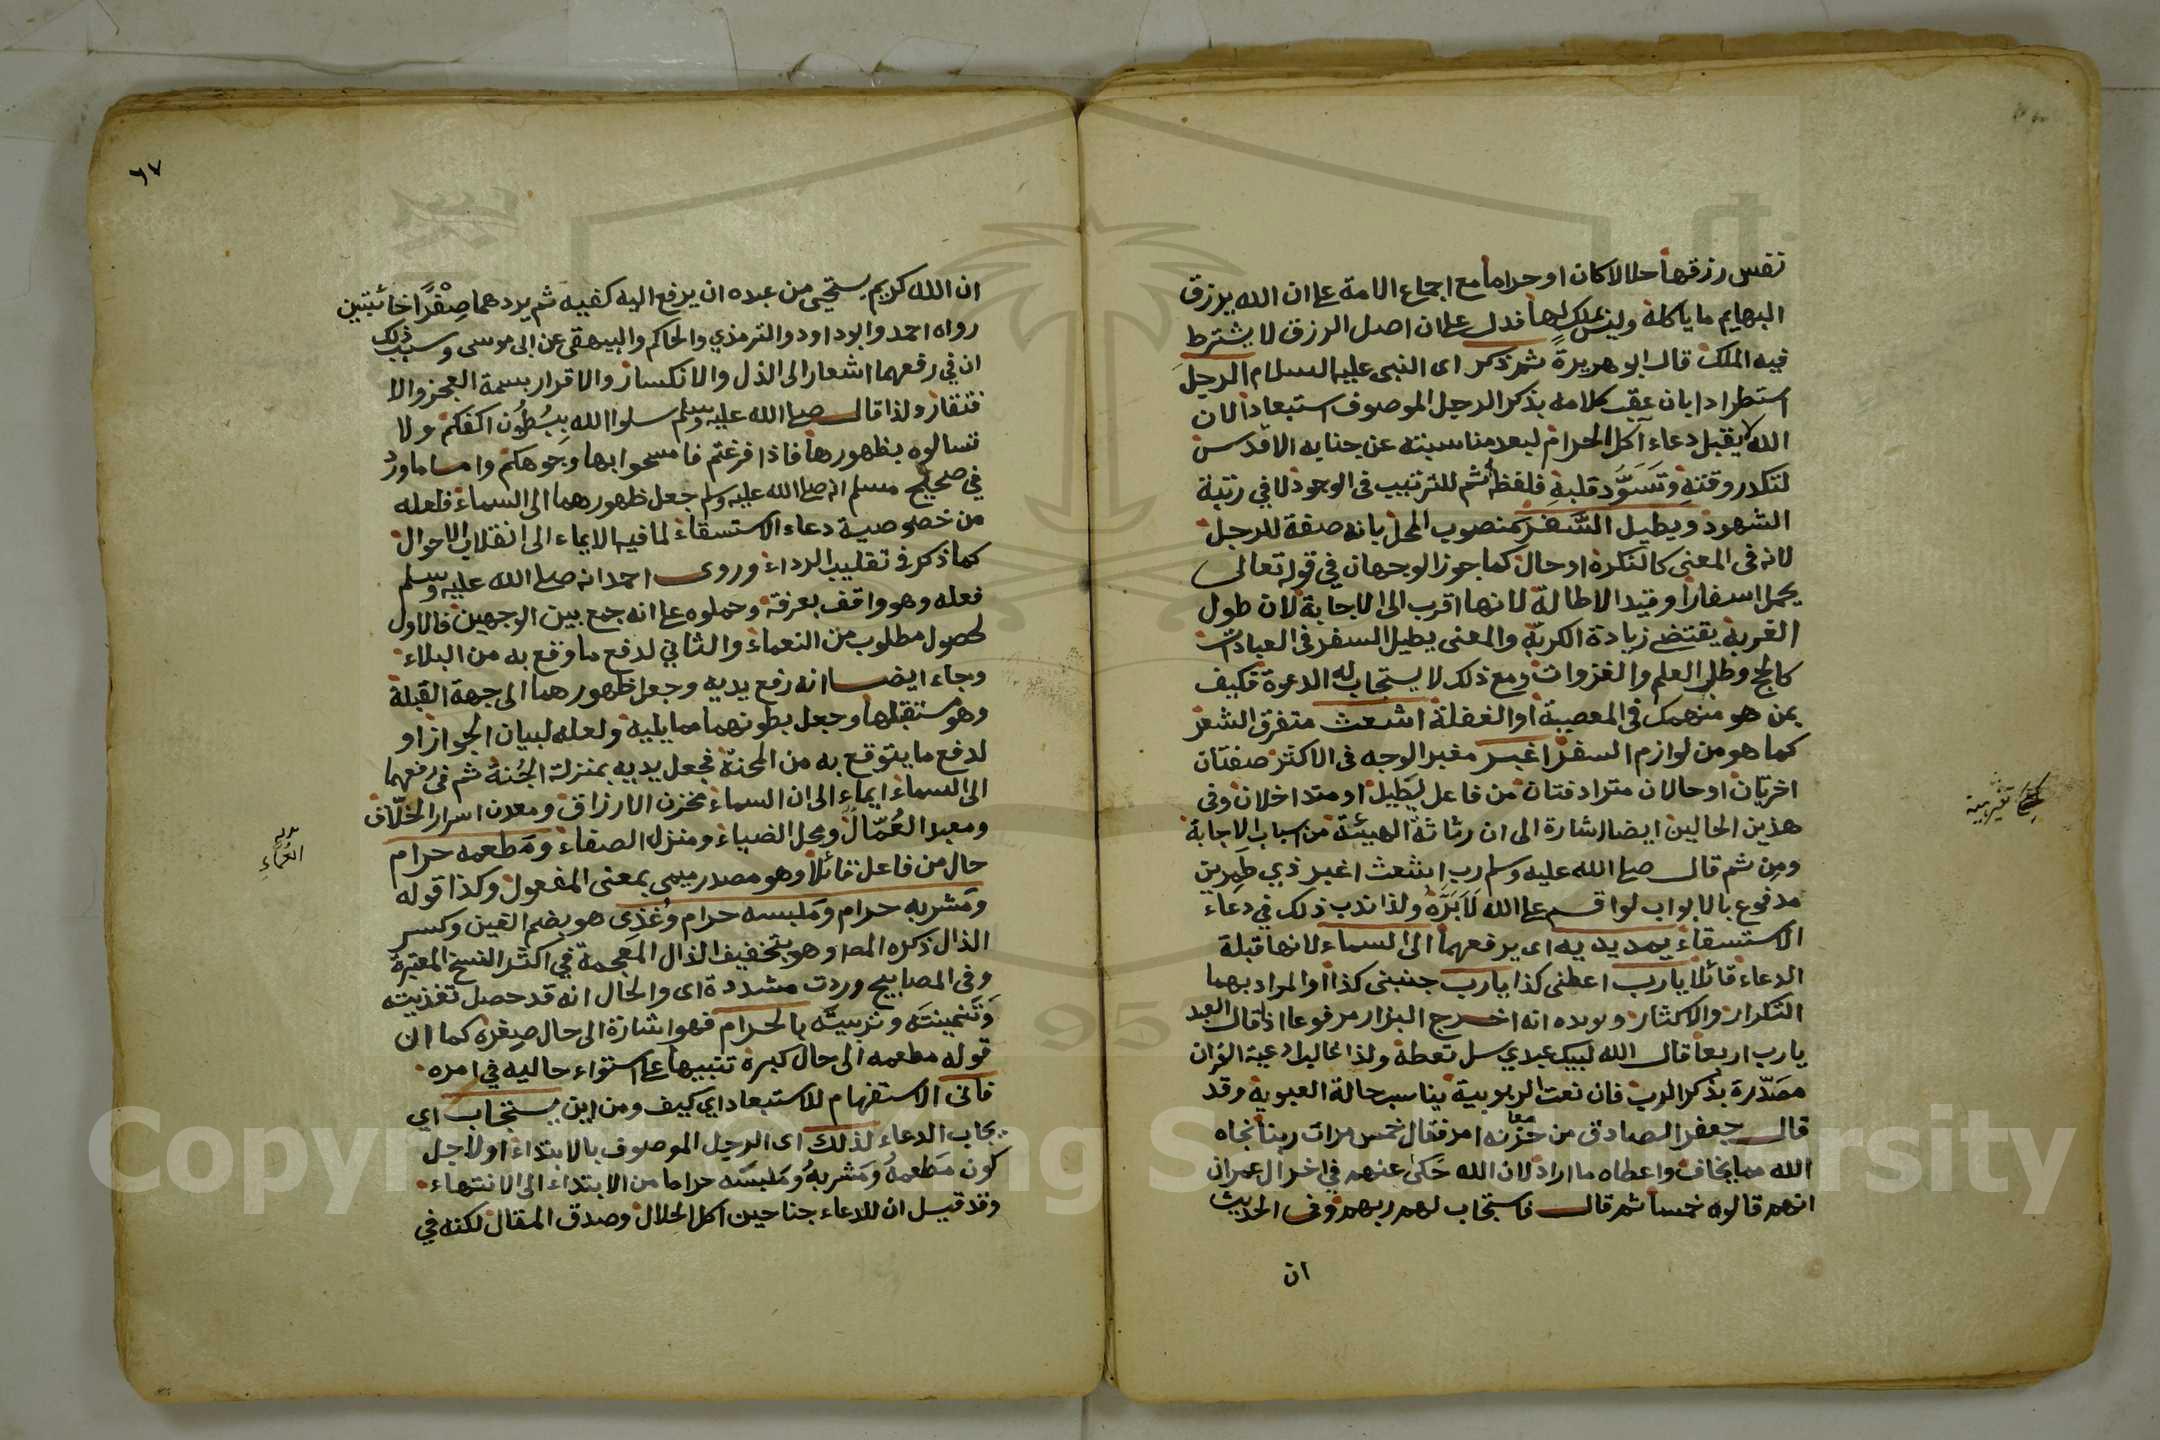 نفس رزقها حلالا كان او حراما مع اجماع الامة على ان الله يرزق
البهايم ما ياكله وليس بملك لها فدل على ان اصل الرزق لا يشترط
فيه الملك قال ابو هريرة ثم ذكر اى النبى عليه السلام الرجل
استطرادا بان عقب كلامه بذكر الرجل الموصوف استبعادا لان
الله لا يقبل دعاء آكل الحرام لبعد مناسبته عن جنابه الاقدس
لتكدر وقته وتسود قلبه فلفظة ثم للترتيب فى الوجود لا في رتبة
الشهود ويطيل السفر منصوب المحل بانه صفة للرجل
لانه فى المعنى كالنكرة او حال كما جوز الوجهان في قوله تعالى
يحمل اسفارا وقيد الاطالة لانها اقرب الى الاجابة لان طول
الغربة يقتضي زيادة الكربة والمعنى يطيل السفر فى العبادات
كالحج وطلب العلم والغزوات ومع ذلك لا يستجاب له الدعوة فكيف
بمن هو منهمك فى المعصية او الغفلة اشعث متفرق الشعر
كما هو من لوازم السفر اغبر مغبر الوجه فى الاكثر صفتان
اخريان او حالان مترادفتان من فاعل يطيل او متداخلان وفى
هذين الحالين ايضا اشارة الى ان رثاثة الهيئة من اسباب الاجابة
ومن ثم قال صلى الله عليه وسلم رب اشعث اغبر ذي طمرين
مدفوع بالابواب لو اقسم على الله لابره ولذا ندب ذلك في دعاء
الاستسقاء يمد يديه اى يرفعهما الى السماء لانها قبلة
الدعاء قائلا يارب اعطنى كذا يارب جنبنى كذا او المراد بهما
التكرار والاكثار ويويده انه اخرج البزار مرفوعا اذا قال العبد
يارب اربعا قال الله لبيك عبدي سل تعطه ولذا غالب ادعية القران
مصدرة بذكر الرب فان نعت الربوبية يناسب حالة العبودية وقد
قال جعفر الصادق من حزنه امر فقال خمس مرات ربنا نجاه
الله مما يخاف واعطاه ما اراد لان الله حكى عنهم في اخر ال عمران
انهم قالوه خمسا ثم قال فاستجاب لهم ربهم وفى الحديث
ان
٦٧
ان الله كريم يستحيى من عبده ان يرفع اليه كفيه ثم يردهما صفرا خائبتين
رواه احمد وابو داود والترمذي والحاكم والبيهقى عن ابى موسى وسبب ذلك
ان في رفعهما اشعارا الى الذل والانكسار والاقرار بسمة العجز والا
فتقار ولذا قال صلى الله عليه وسلم سلوا الله ببطون اكفكم ولا
تسالوه بظهورها فاذا فرغتم فامسحوا بها وجوهكم واما ما ورد
في صحيح مسلم انه صلى الله عليه وسلم جعل ظهورهما الى السماء فلعله
من خصوصية دعاء الاستسقاء لما فيه الايماء الى انقلاب الاحوال
كما ذكر فى تقليب الرداء وروى احمد انه صلى الله عليه وسلم
فعله وهو واقف بعرفة وحملوه على انه جمع بين الوجهين فالاول
لحصول مطلوب من النعماء والثاني لدفع ما وقع به من البلاء
وجاء ايضا انه رفع يديه وجعل ظهورهما الى جهة القبلة
وهو مستقبلها وجعل بطونهما مما يليه ولعله لبيان الجواز او
لدفع ما يتوقع به من المحنة فجعل يديه بمنزلة الجنة ثم فى رفعهما
الى السماء ايماء الى ان السماء مخزن الارزاق ومعدن اسرار الخلاق
ومعبد العمال ومحل الضياء ومنزل الصفاء ومطعمه حرام
حال من فاعل قائلا وهو مصدر ميمى بمعنى المفعول وكذا قوله
ومشربه حرام وملبسه حرام وغذى هو بضم الغين وكسر
الذال ذكره المص وهو بتخفيف الذال المعجمة في اكثر النسخ المعتبرة
وفى المصابيح وردت مشددة اى والحال انه قد حصل تغذيته
وتنميته وتربيته بالحرام فهو اشارة الى حال صغره كما ان
قوله مطعمه الى حال كبره تنبيها على استواء حاليه في امره
فانى الاستفهام للاستبعاد اي كيف ومن اين يستجاب اي
يجاب الدعاء لذلك اى الرجل الموصوف بالابتداء او لاجل
كون مطعمه ومشربه وملبسه حراما من الابتداء الى الانتهاء
وقد قيل ان للدعاء جناحين اكل الحلال وصدق المقال لكنه في